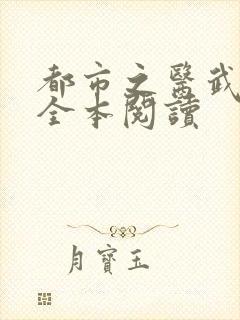 都市之醫武
全本閱讀
月寶玉